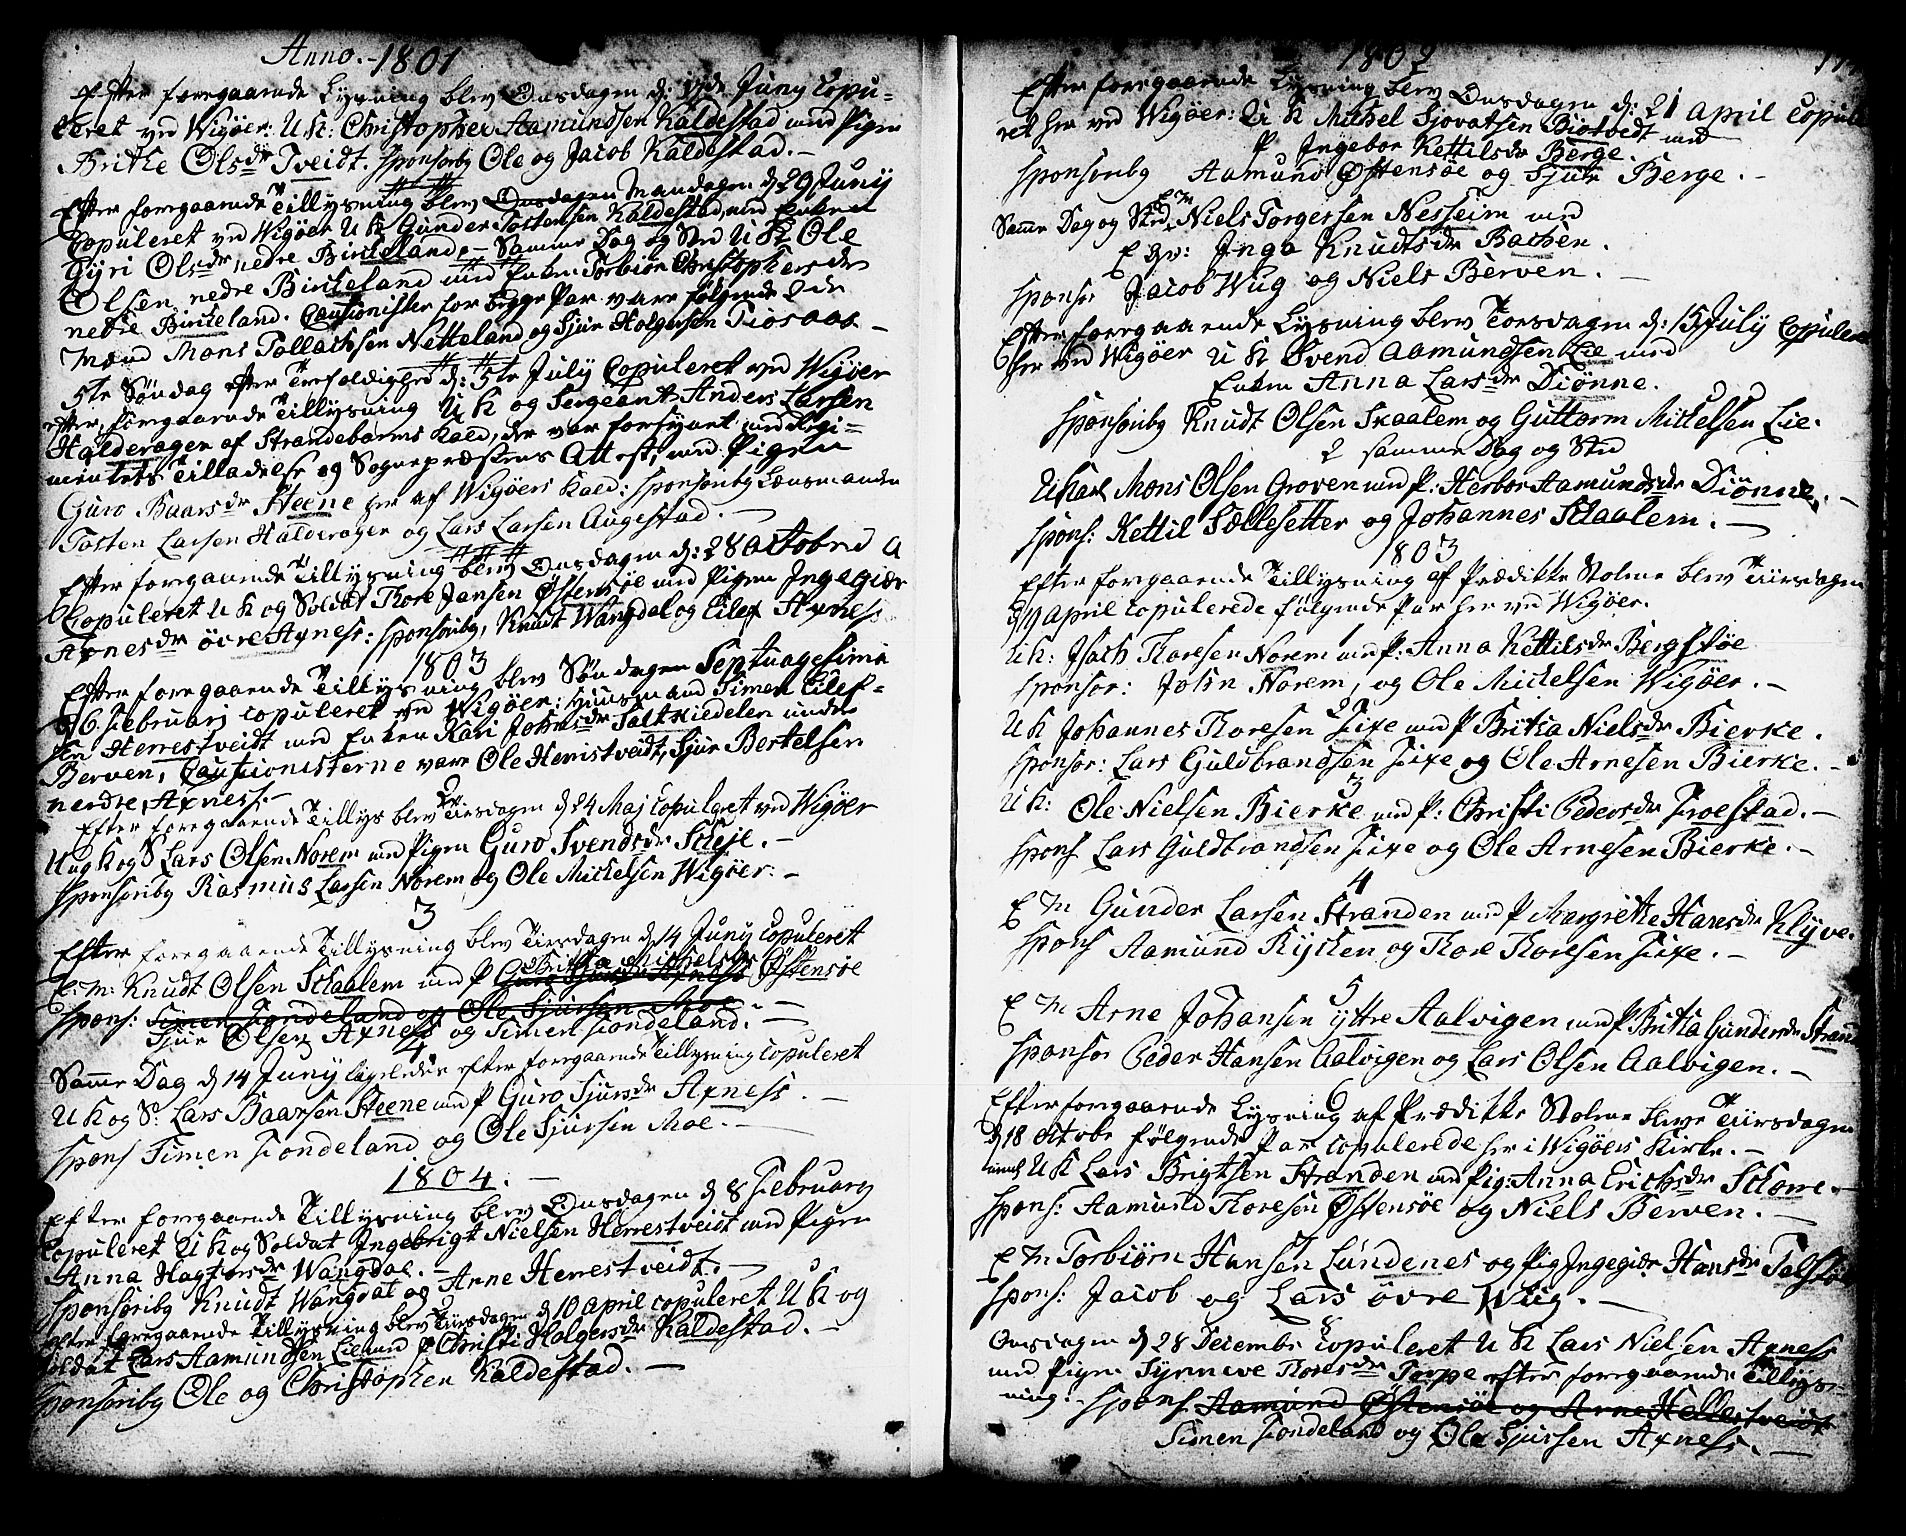 Anno. 1801
Efter foregaaende Lysning blev Onsdagen d: 17de Juny Copu=
leret ved Wigøer: U K: Christopher Aamundsen Kaldestad med Pigen
Britke Olsdr Tveidt. Sponsorib9 Ole og Jacob Kaldestad. –
Efter foregaaende Tillysning blev Onsdagen Mandagen d 29 Juny
Copuleret ved Wigøer U K Gunder Tostensen Kaldestad, med Enken
Gyri Olsdr nedre Birkeland. – Samme Dag og Sted U K Ole
Olsen nedre Birkeland med Enken Torbiør Christophersdr
nedre Birkeland. Cautionister for begge Par vare følgende 2de
Mænd Mons Tollachsen Netteland og Sjur Holgersen Tiosaas –
5te Søndag efter Trefoldighed d: 5te July Copuleret ved Wigøer
efter foregaaende Tillysning U K og Sergeant Anders Larsen
Halderagen af Strandebarms Kald, der var forsynet med Regi=
mentets Tilladelse og Sognepræstens Attest, med Pigen
Guro Baarsdr Steene her af Wigøers Kald: Sponsorib9 Lensmanden
Tosten Larsen Halderagen og Lars Larsen Augestad. –
Efter foregaaende Tillysning blev Onsdagen d: 28 Octobr
Copuleret U K og Soldat Thore Jansen Østensøe med Pigen Ingegiær
Arnesdr øvre Axnes: Sponsorib9, Knudt Wangdal og Eilef Axnes
1803
Efter foregaaende Tillysning blev Søndagen Septuagesima
d 6 Februarj copuleret ved Wigøer: Huusmand Simen Eilef=
sen Herrestveidt med Enken Kari Johnsdr Saltkiedelen under
Berven, Cautionisterne vare Ole Herristveidt, Sjur Bertelsen
nerdre Axnes. –
2
Efter foregaaende Tillys blev Tirsdagen d 24 Maj Copuleret ved Wigøer
U og K og S Lars Olsen Norem med Pigen Guro Svendsdr Steje. –
Sponsorib9 Rasmus Larsen Norem og Ole Mickelsen Wigøer. –
3
Efter foregaaende Tillysning blev Tirsdagen d 14 Juny Copuleret
E: M: Knudt Olsen Skaalem med P Guro Sjursdr Axnes Britha Michelsdr Østensøe
Spons: Simen Tiondeland og Ole Sjursen Moe. –
Sjur Olsen Axnes og Simen Tiondeland. –
4
Samme Dag d 14 Juny ligeledes efter foregaaende Tillysning copuleret
U K og S: Lars Baarsen Steene med P Guro Sjursdr Axness. –
Spons Simen Tiondeland og Ole Sjursen Moe. –
1804. –
Efter foregaaende Tillysning blev Onsdagen d 8 Februarj
Copuleret U K og Soldat Ingebrigt Nielsen Herrestveidt med Pigen
Anna Hagtorsdr Wangdal. –
Sponsorib9 Knudt Wangdal og Arne Herrestveidt. –
efter foregaaende Tillysning blev Tirsdagen d 10 April copuleret U K og
Soldat Lars Aamundsen Lie med P Christi Holgersdr Kaldestad. –
Sponsorib9 Ole og Christophen Kaldestad. –
1802
Efter foregaaende Lysning blev Onsdagen d: 21 April Copule
ret her ved Wigøer: U K Mickel Sjovatsen Biotvedt med
P Ingebor Kettilsdr Berge.
Sponsorib9 Aamund Østensøe og Sjur Berge. –
Samme Dag og Sted E M Niels Torgersen Nesseim med
E qv: Inga Knudtsdr Backen.
Sponsor Jacob Wug og Niels Berven. –
Efter foregaaende Lysning blev Torsdagen d: 15 July Copuleret
her ved Wigøer U K Svend Aamundsen Lie med
Enken Anna Larsdr Diønne.
Sponsorib9 Knudt Olsen Skaalem og Guttorm Mickelsen Lie.
2 samme Dag og Sted
U Karl Mons Olsen Groven med P: Herbor Aamundsdr Diønne. –
Spons: Kettil Sællesetter og Johannes Skaalem. –
1803
Efter foregaaende Tillysning af Prædikke Stolene blev Tiirsdagen
d 19 April copulerede følgende Par her ved Wigøer.
1
U K: Isach Thoresen Norem med P: Anna Kettilsdr Bergstøe
Sponsor: John Norem, og Ole Mickelsen Wigøer. –
2
U K Johannes Thoresen Fixe med P Britha Nielsdr Bierke.
Sponsor: Lars Guldbrandsen Fixe og Ole Arnesen Bierke. –
3
U K: Ole Nielsen Bierke med P: Christi Pedersdr Troestad. –
Spons Lars Guldbrandsen Fixe og Ole Arnesen Bierke. –
4
E M Gunder Larsen Stranden med P Margrethe Haresdr Klyve.
Spons Aamund Rycken og Thore Thoresen Fixe. –
5
E M Arne Johansen yttre Aalvigen med P Britha Gundersdr Strand
Sponsor Peder Hansen Aalvigen og Lars Olsen Aalvigen. –
6
Efter foregaaende Lysning af Prædikke Stolene bleve Tiirsdagen
d 18 Octobr følgende Par copulerede her i Wigøers Kirke. –
U K Lars Brigtsen Stranden med Pig: Anna Erichsdr Schore. –
Spons: Aamund Thoresen Østensøe og Niels Berven. –
7
E M Torbiørn Hansen Lundenes og Pig Ingegidr Hansdr Tolstøe
Spons: Jacob og Lars øvre Wug. –
8
Onsdagen d 28 Decembr Copuleret U K Lars Nielsen Axness
med Pigen Synneve Thoresdr Torpe efter foregaaende Tillys=
ning. – Spons Aamund Østensøe og Arne Hellestveidt
Simen Tiondeland og Ole Sjursen Axness. –